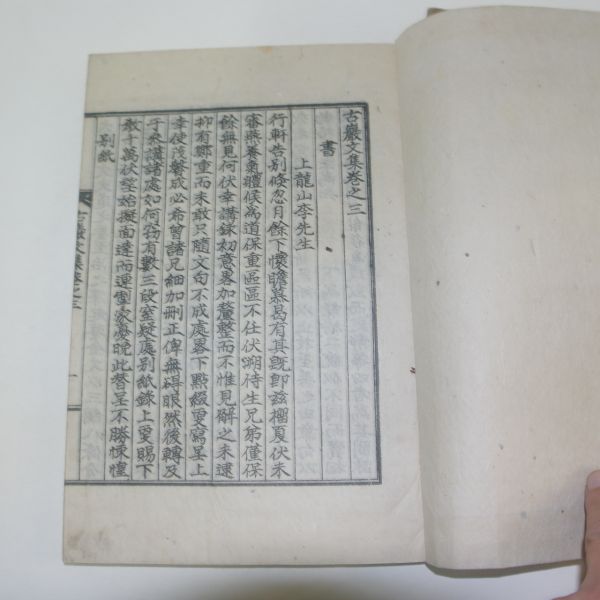 古巖文集卷之三
書
上龍山李先生
行軒告別倏忽月餘下懷瞻慕曷有其旣卽玆榴夏伏未
審燕養氣體候爲道保重區區不任伏溯侍生兄弟僅保
餘無見何伏幸講錄初意畧加釐整而不惟見解之未逮
抑有鄭重而未敢只隨文句不成處畧下點綴更寫呈上
幸使淨贊成必希曾諸兄細加刪正俾無碍眼然後轉及
于參讀諸處如何務有數三段室疑處別紙錄上更賜下
敎千萬伏望始擬面達而連雪家憂晩此替呈不勝悚惶
別紙
古巖文集卷之三
一